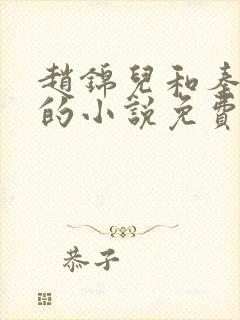 趙錦兒和秦
的小說免費
恭子